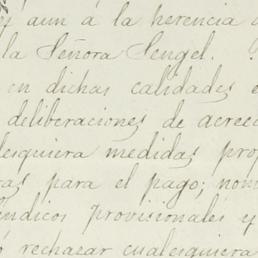 aun á la herencia
la Señora Sengel.
en dichas calidades
deliberaciones de acree
esquiera medidas prop
ras para el pago; nom
índicos provisionales y
ó rechazar cualesquiera